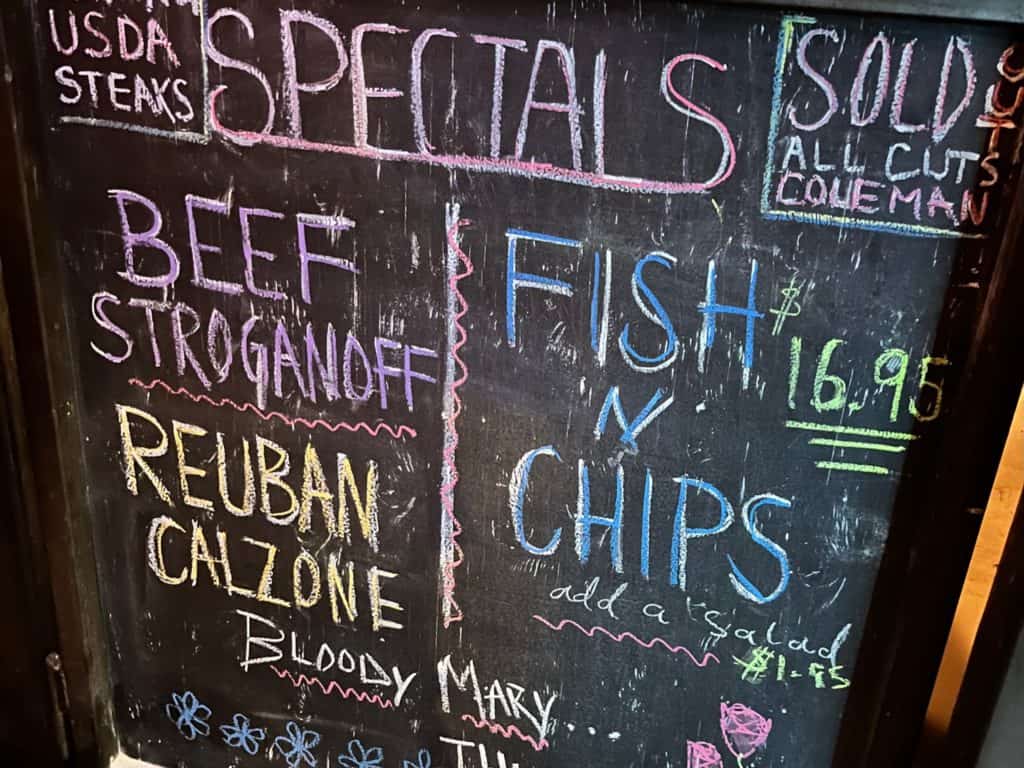 USDA
STEAKS
SPECIALS
SOLD
ALL CUTS
COLEMAN
BEEF
STROGANOFF
REUBAN
CALZONE
FISH
N
CHIPS
$
16.95
add a salad
$1.95
BLOODY MARY...